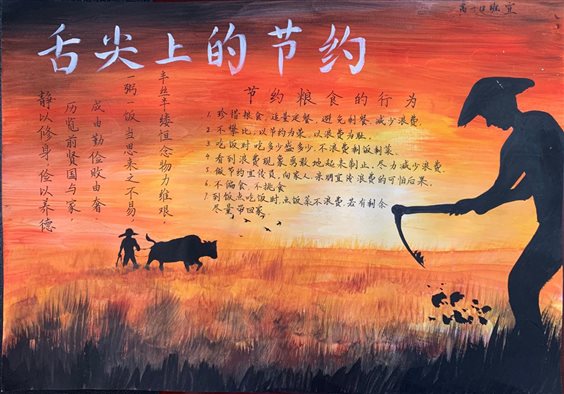 舌尖上的节约
半丝半缕恒念物力维艰
一粥一饭当思来之不易
成由勤俭败由奢
历览前贤国与家
静以修身俭以养德
节约粮食的行为
1. 珍惜粮食,适量定餐,避免剩餐,减少浪费.
2. 不攀比,以节约为荣,以浪费为耻.
3. 吃饭时吃多少盛多少,不浪费制饭制菜.
4. 看到浪费现象勇敢地起来制止,尽力减少浪费.
5. 做节约宣传员,向家人,亲朋宣传浪费的可怕后果.
6. 不偏食,不挑食
7. 到饭点吃饭时,点饭菜不浪费,若有剩余
尽量带回家